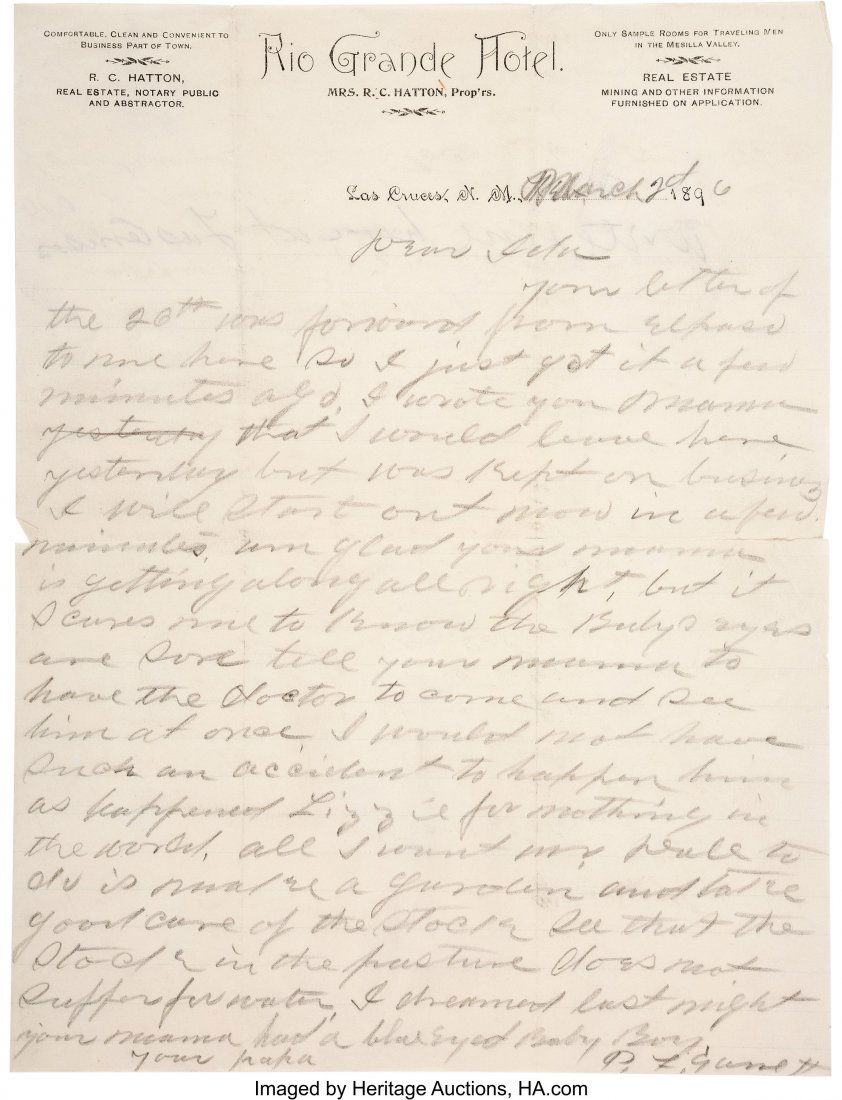 COMFORTABLE, CLEAN AND CONVENIENT TO
BUSINESS PART OF TOWN.
R. C. HATTON,
REAL ESTATE, NOTARY PUBLIC
AND ABSTRACTOR.
Rio Grande Hotel.
MRS. R. C. HATTON, Prop'rs.
ONLY SAMPLE ROOMS FOR TRAVELING MEN
IN THE MESILLA VALLEY.
REAL ESTATE
MINING AND OTHER INFORMATION
FURNISHED ON APPLICATION.
Las Cruces, N. M., March 2d 1896
Dear Ida
your letter of
the 26th was forward from Elpaso
to me here so I just got it a few
minutes ago. I wrote you Mama
yesterday that I would leave here
yesterday but was kept on business
I will start out now in a few
minutes, am glad your mama
is getting along all right, but it
scares me to know the Babys eyes
are sore tell your mama to
have the doctor to come and see
him at once I would not have
such an accident to happen him
as happened Lizzie for nothing in
the world, all I want my peole to
do is make a garden, and take
good care of the stock see that the
stock in the pasture does not
suffer for water, I dreamed last night
your mama had a blue eyed Baby Boy,
your papa
P. F. Garrett
Imaged by Heritage Auctions, HA.com